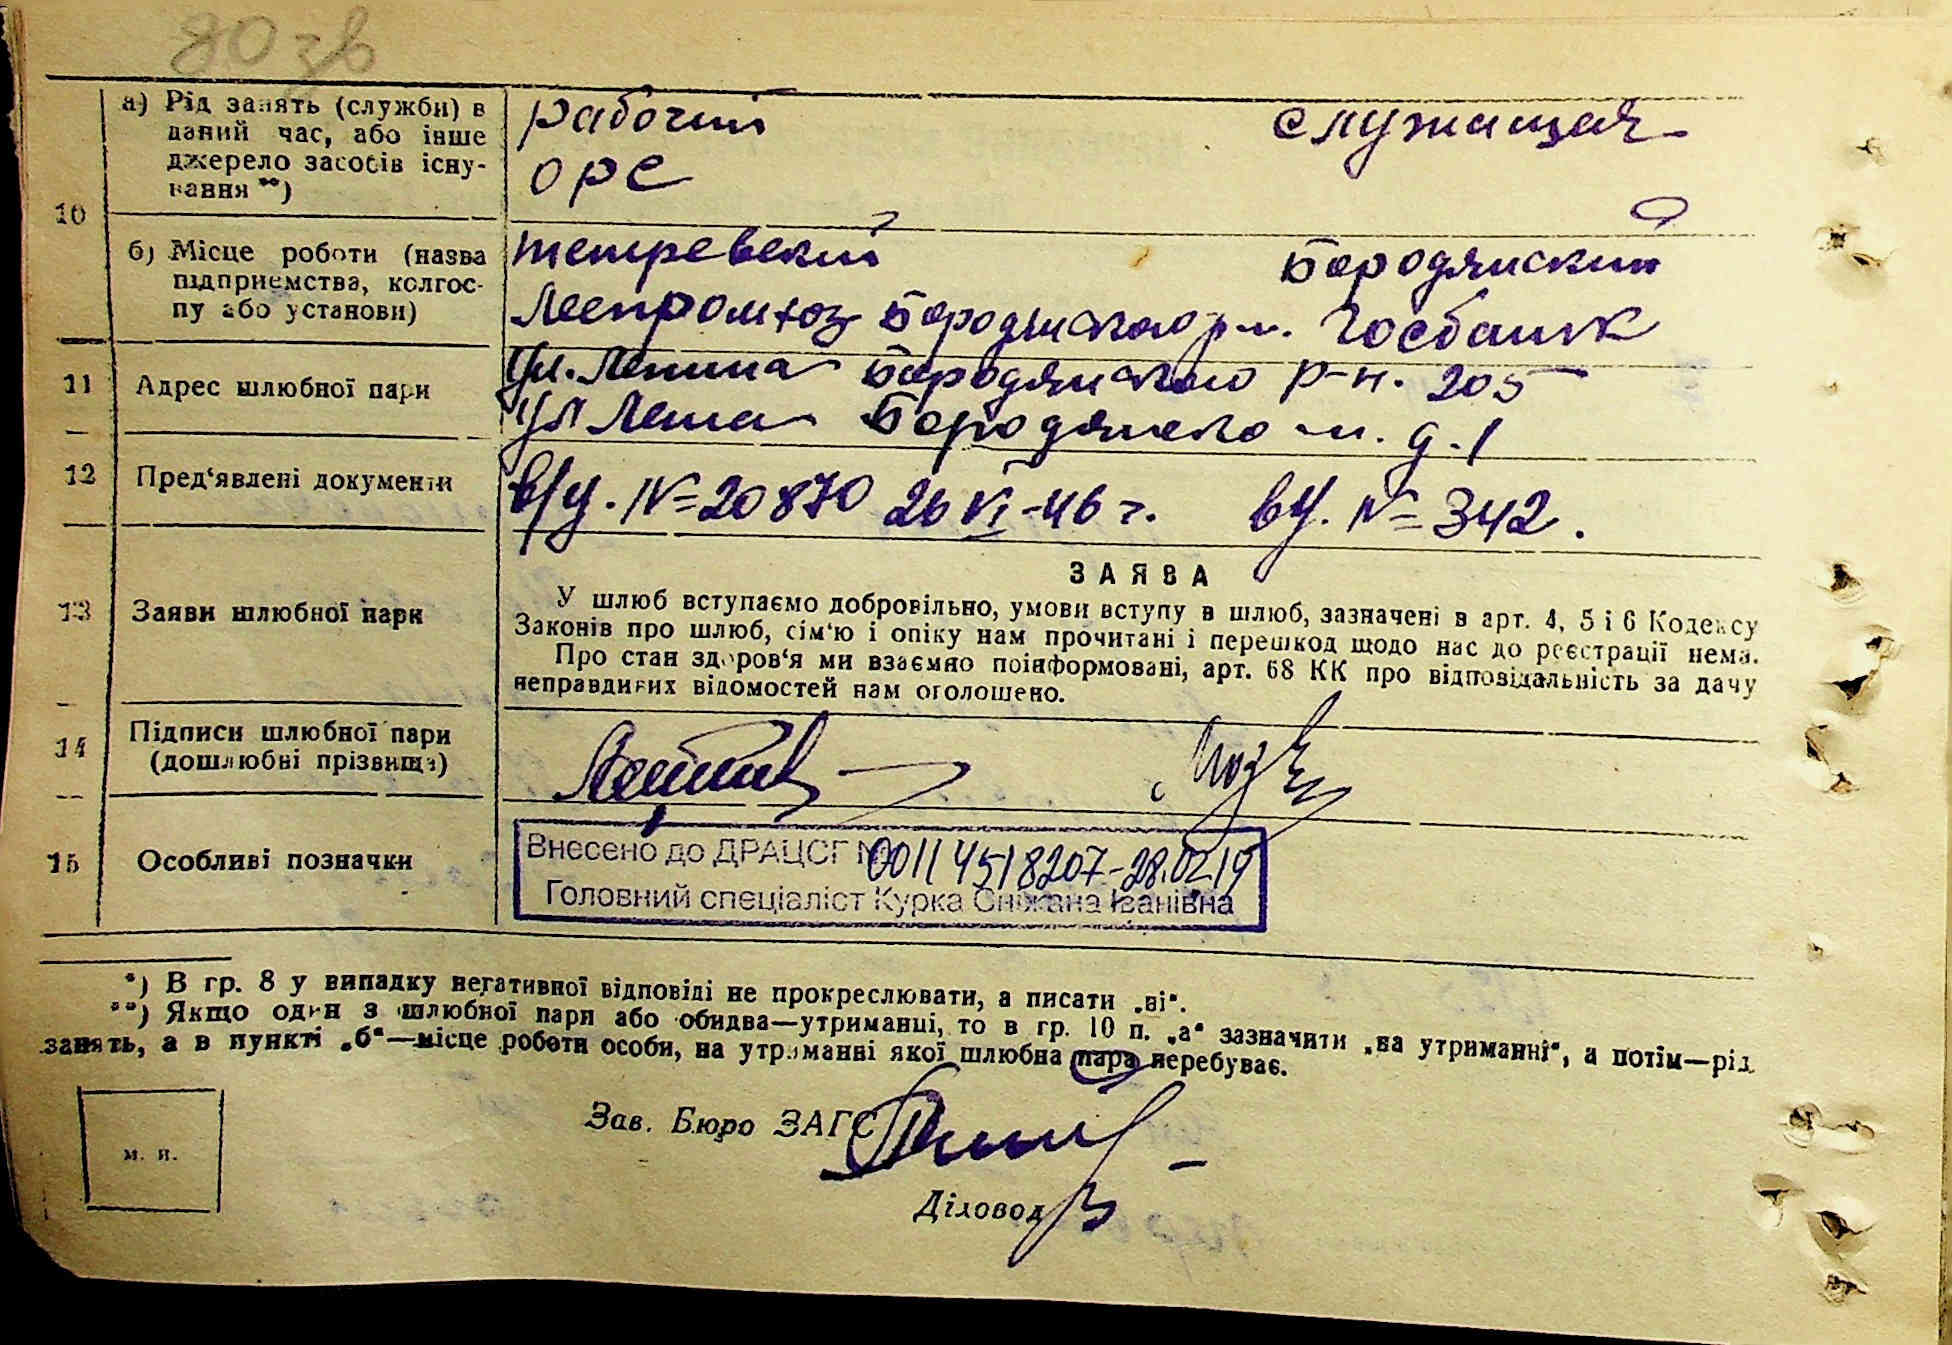 80 зв
10
а) Рід занять (служби) в даний час, або інше джерело засобів існування **)
рабочий служащая
орс
б) Місце роботи (назва підприємства, колгоспу або установи)
тетревский Бородянский
Леспромхоз Бородянского р-н. Госбанк
11 Адрес шлюбної пари
ул. Ленина Бородянского р-н. 205
ул Бородянского д. 1
12 Пред'явлені документи
в/у. №=20870 26 VI-46 г. ву. №=342.
13 Заяви шлюбної пари
ЗАЯВА
У шлюб вступаємо добровільно, умови вступу в шлюб, зазначені в арт. 4, 5 і 6 Кодексу
Законів про шлюб, сім'ю і опіку нам прочитані і перешкод щодо нас до реєстрації нема.
Про стан здоров'я ми взаємно поінформовані, арт. 68 КК про відповідальність за дачу
неправдивих відомостей нам оголошено.
14 Підписи шлюбної пари
(дошлюбні прізвища)
15 Особливі позначки
Внесено до ДРАЦСГ № 00114518207-28.02.19
Головний спеціаліст Курка Сніжана Іванівна
*) В гр. 8 у випадку негативної відповіді не прокреслювати, а писати „ні“.
**) Якщо один з шлюбної пари або обидва—утриманці, то в гр. 10 п. „а“ зазначити „на утриманні“, а потім—рід
занять, а в пункті „б“—місце роботи особи, на утриманні якої шлюбна пара перебуває.
Зав. Бюро ЗАГС
м. п.
Діловод